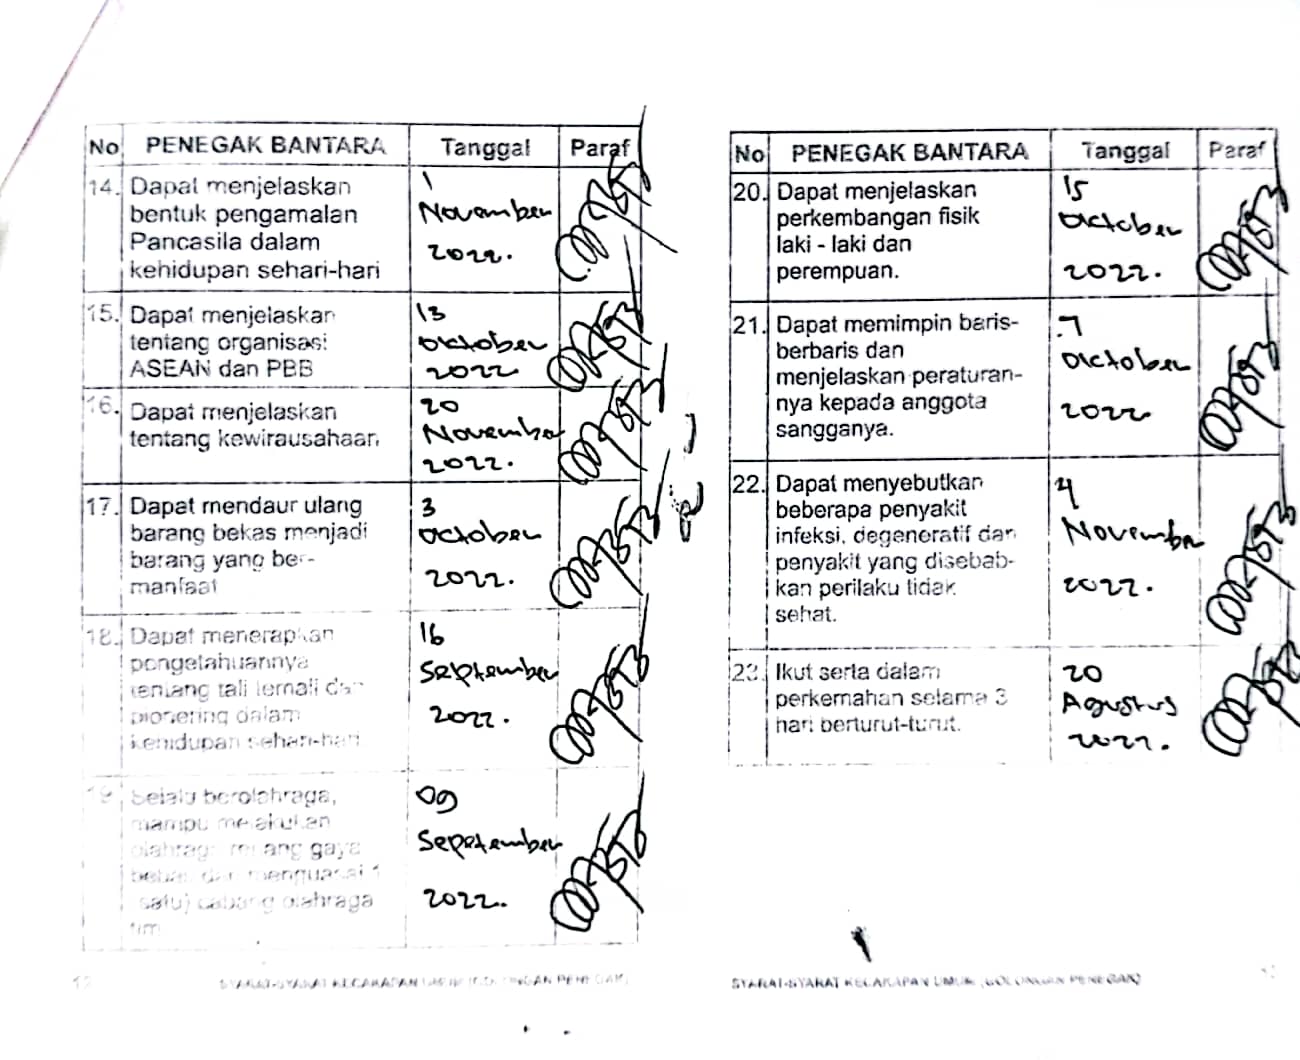 No PENEGAK BANTARA Tanggal Paraf
14. Dapat menjelaskan
bentuk pengamalan
Pancasila dalam
kehidupan sehari-hari
1
November
2022.
15. Dapat menjelaskan
tentang organisasi
ASEAN dan PBB
13
October
2022
16. Dapat menjelaskan
tentang kewirausahaan
20
November
2022.
17. Dapat mendaur ulang
barang bekas menjadi
barang yang ber-
manfaat
3
October
2022.
18. Dapat menerapkan
pengetahuannya
tentang tali temali dan
pionering dalam
kehidupan sehari-hari
16
September
2022.
19. Selalu berolahraga,
mampu melakukan
olahraga renang gaya
bebas dan menguasai 1
(satu) cabang olahraga
tim
09
September
2022.
12 SYARAT-SYARAT KECAKAPAN UMUM (GOLONGAN PENEGAK)
No PENEGAK BANTARA Tanggal Paraf
20. Dapat menjelaskan
perkembangan fisik
laki - laki dan
perempuan.
15
October
2022.
21. Dapat memimpin baris-
berbaris dan
menjelaskan peraturan-
nya kepada anggota
sangganya.
7
October
2022
22. Dapat menyebutkan
beberapa penyakit
infeksi, degeneratif dan
penyakit yang disebab-
kan perilaku tidak
sehat.
4
November
2022.
23. Ikut serta dalam
perkemahan selama 3
hari berturut-turut.
20
Agustus
2022.
SYARAT-SYARAT KECAKAPAN UMUM (GOLONGAN PENEGAK)